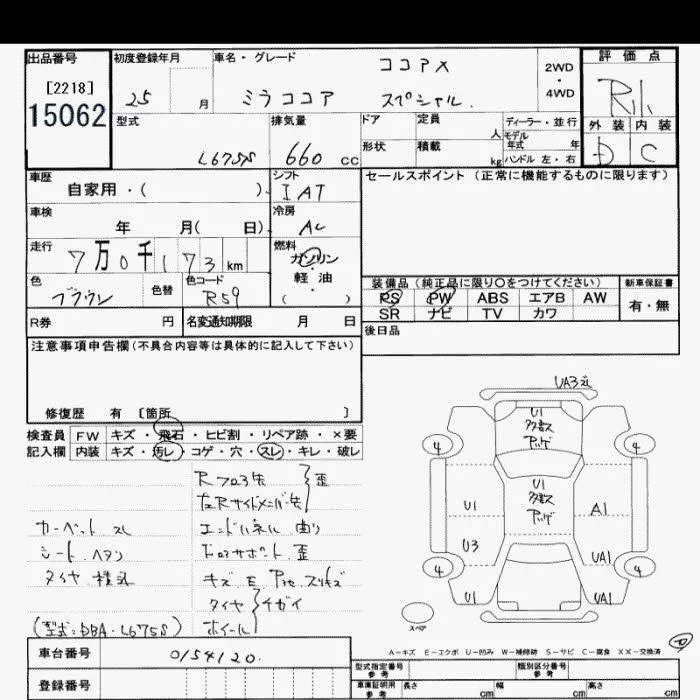 出品番号
[2218]
15062
初度登録年月
25 月
車名・グレード
ココア X
ミラココア スペシャル
2WD
・
4WD
評価点
外装 内装
D C
型式
L675S
排気量
660 cc
ドア
定員
人
形状
積載
kg
ディーラー・並行
モデル
年式 年
ハンドル 左・右
車歴
自家用・( )
シフト
IAT
車検
年 月( 日)
冷房
AC
走行
7万0千173 km
燃料
ガソリン
・
軽油
( )
色
ブラウン
色替
色コード
R59
R券 円
名変通知期限 月 日
セールスポイント(正常に機能するものに限ります)
装備品(純正品に限り○をつけてください)
PS PW ABS エアB AW
SR ナビ TV カワ
新車保証書
有・無
後日品
注意事項申告欄(不具合内容等は具体的に記入して下さい)
修復歴 有 〔箇所 〕
検査員
記入欄
FW キズ・飛石・ヒビ割・リペア跡・×要
内装 キズ・汚レ・コゲ・穴・スレ・キレ・破レ
Rフロア先 歪
左Rサイドメンバー先
エンドパネル 曲り
カーペット スレ
シート ヘタリ
キズ E
タイヤ チガイ
ホイール
(型式:DBA-L675S)
UA3
U1
多数
アッゲ
U1
多数
アッゲ
4
4
4
4
U1
U3
U1
A1
UA1
UA1
スペア
A-キズ E-エクボ U-凹み W-補修跡 S-サビ C-腐食 XX-交換済
車台番号
0154120.
登録番号
型式指定番号
参考
類別区分番号
参考
車庫証明用
参考
長さ cm
幅 cm
高さ cm